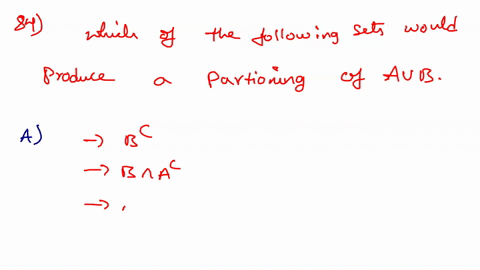 84) which of the following sets would
Produce a Partioning of A∪B.
A) → B^C
→ B∩A^C
→